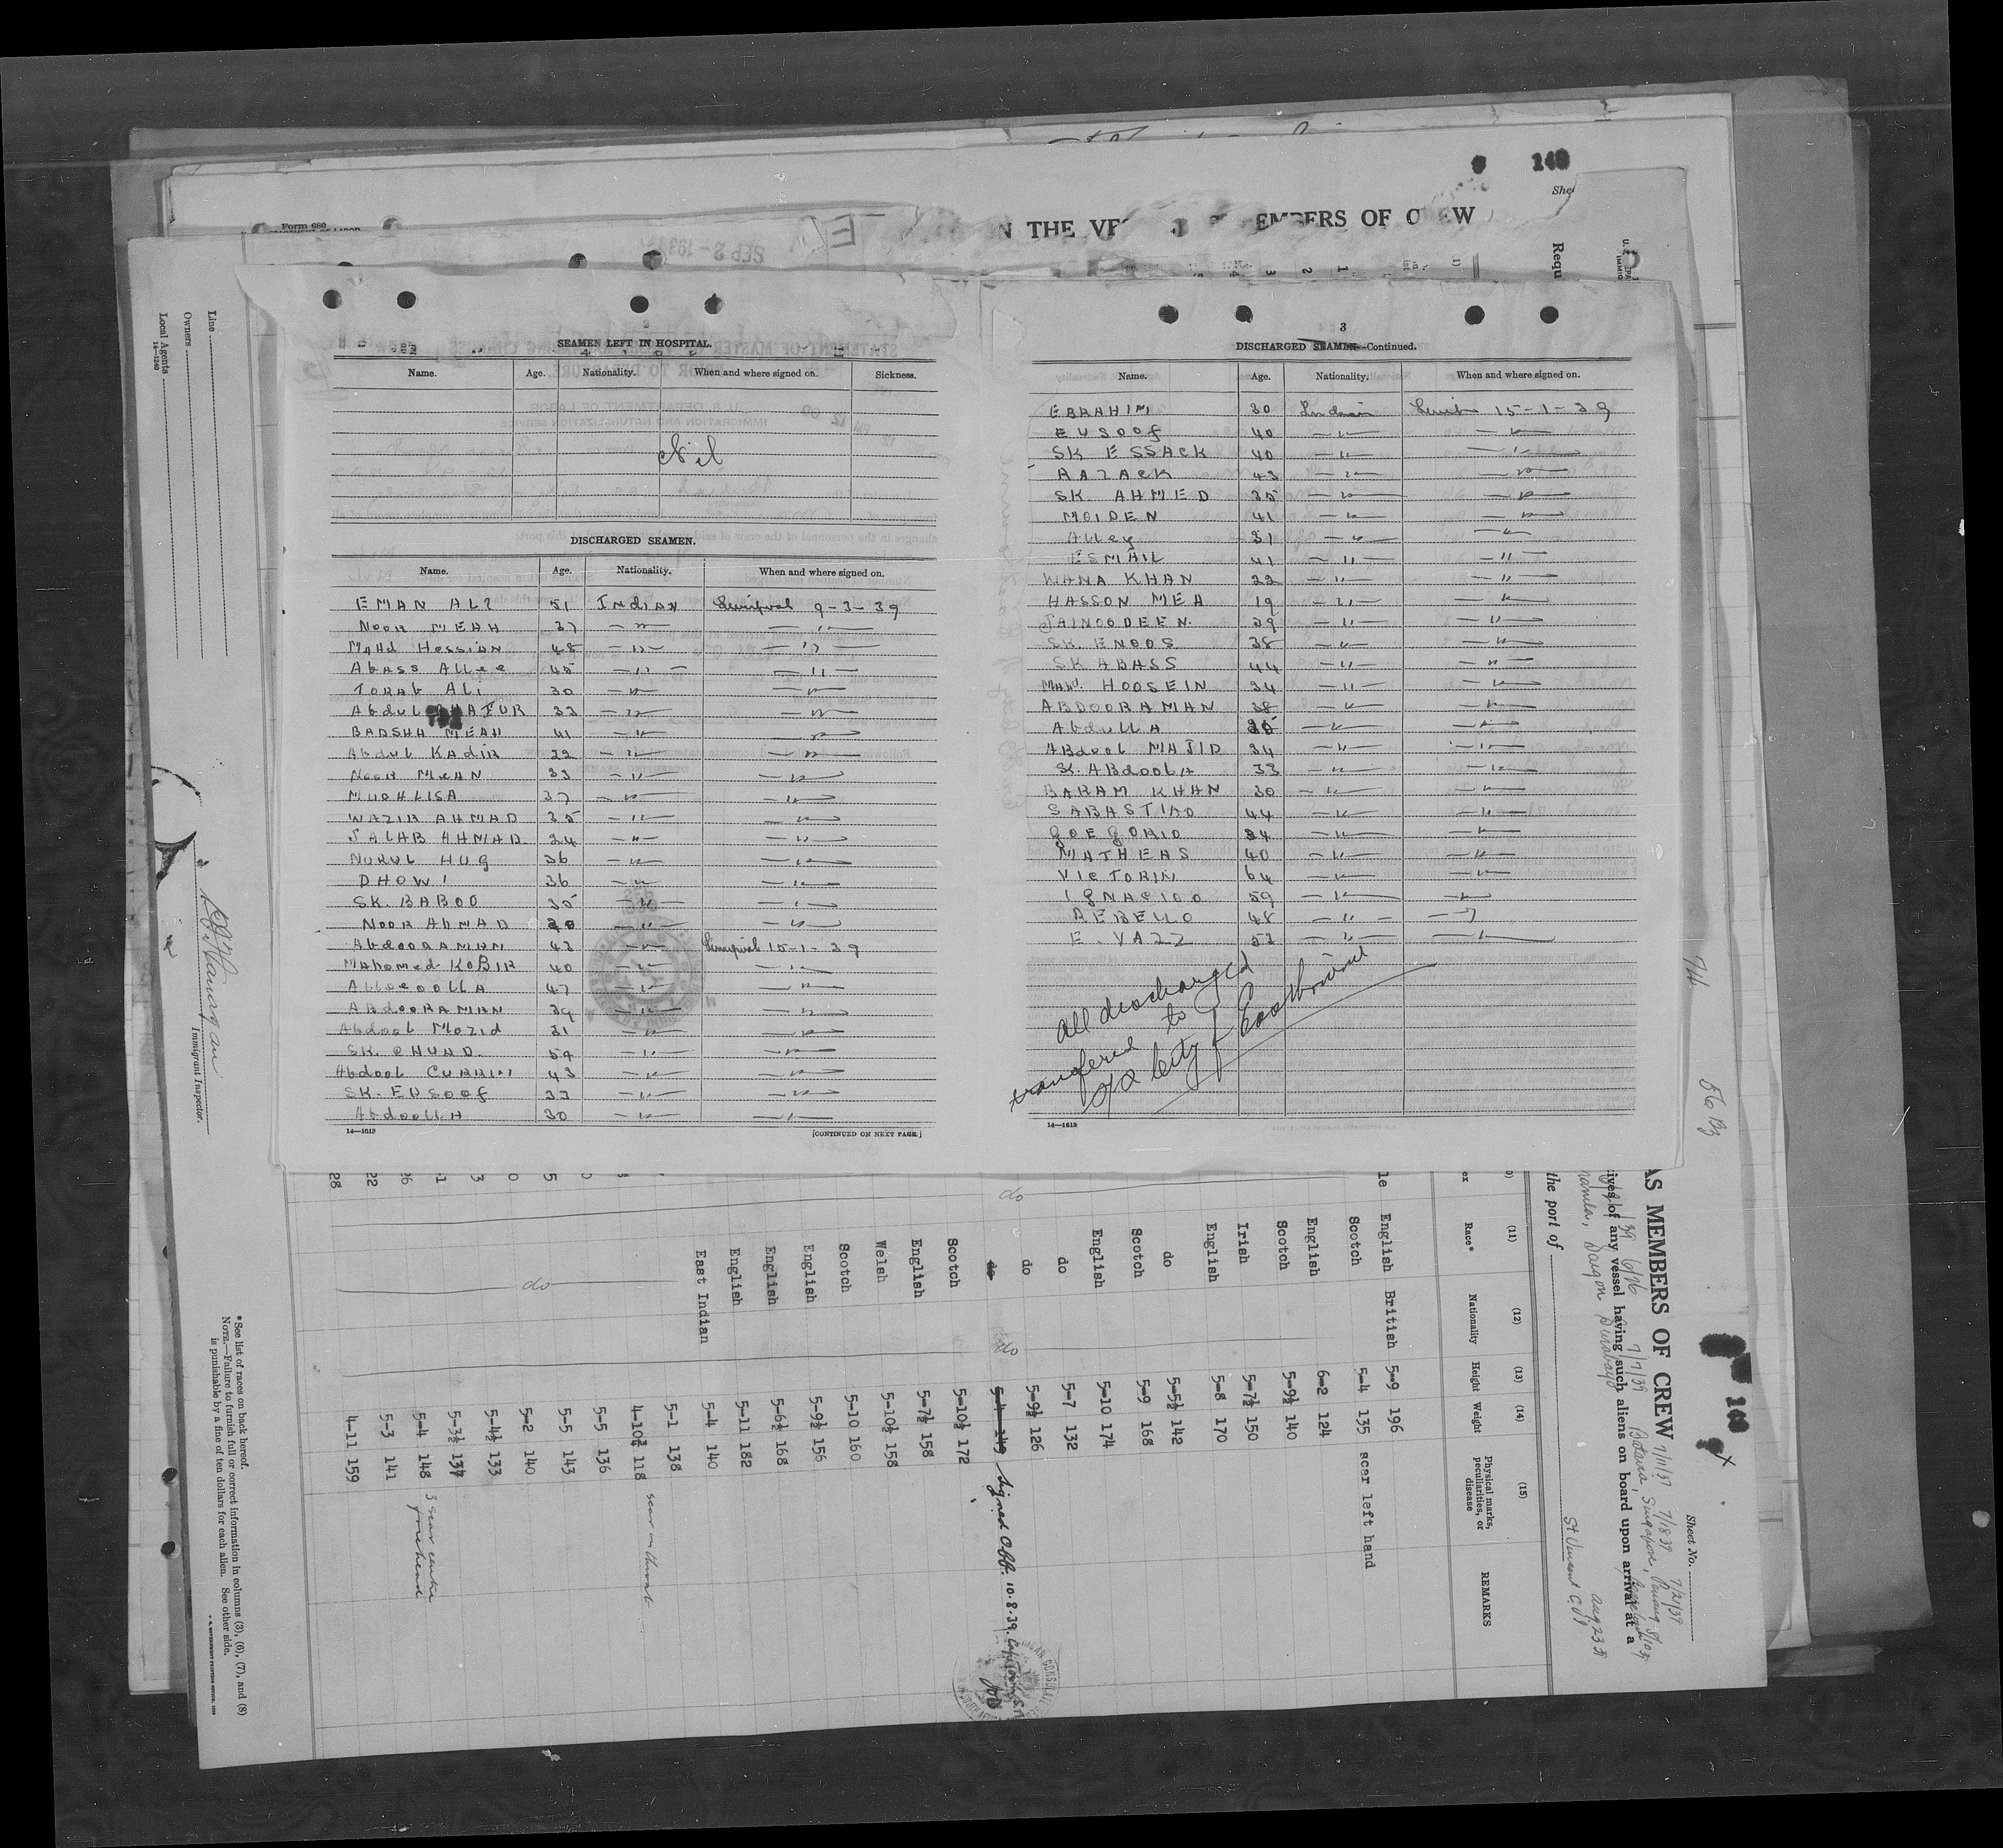 149
Form 680
N THE VES EMBERS OF CREW
SEP 2 - 193
Requ
Line
Owners
Local Agents
14—1240
SEAMEN LEFT IN HOSPITAL.
Name. Age. Nationality. When and where signed on. Sickness.
Nil
DISCHARGED SEAMEN.
Name. Age. Nationality. When and where signed on.
EMAN ALI 51 INdIAN Liverpool 9-3-39
NOOR MEAH 37 —"— —"—
Mohd Hossian 48 —"— —"—
Abass Allee 45 —"— —"—
TORAb ALi 30 —"— —"—
Abdul GHAFUR 33 —"— —"—
BADSHA MEAH 41 —"— —"—
Abdul KAdiR 22 —"— —"—
NOOR MEAN 33 —"— —"—
MUCHLISA 37 —"— —"—
WAZIR AHMAD 35 —"— —"—
JALAB AHMAD 24 —"— —"—
NURUL HUG 36 —"— —"—
DHOWI 36 —"— —"—
SK. BABOO 35 —"— —"—
NOOR AhMAD —"— —"—
AbdOORAMAN 43 —"— Liverpool 15-1-39
Mahomed KOBIR 40 —"— —"—
Alleeoolla 47 —"— —"—
ABdOORAMAN 39 —"— —"—
Abdool Mozid 31 —"— —"—
SK. CHUND 54 —"— —"—
Abdool CURRIM 43 —"— —"—
SK. EUSOOf 33 —"— —"—
AbdoollA 30 —"— —"—
14—1613 [CONTINUED ON NEXT PAGE.]
3
DISCHARGED SEAMEN—Continued.
Name. Age. Nationality. When and where signed on.
EBRAHIM 30 Indian 15-1-39
EUSOOf 40 —"— —"—
SK ESSACK 40 —"— —"—
RAZACK 43 —"— —"—
SK. AHMED 35 —"— —"—
MOIDEN 41 —"— —"—
Alley 31 —"— —"—
ESMAIL 41 —"— —"—
WANA KHAN 22 —"— —"—
HASSON MEA 19 —"— —"—
JAINOODEEN 39 —"— —"—
SK. ENOOS 38 —"— —"—
SK ABASS 44 —"— —"—
Mahd. HOOSEIN 34 —"— —"—
ABDOORAMAN 38 —"— —"—
AbdullA —"— —"—
ABdool MAJID 34 —"— —"—
SK. ABdoolA 33 —"— —"—
BARAM KHAN 30 —"— —"—
SABASTIAO 44 —"— —"—
GOEGORIO 34 —"— —"—
MATHEAS 40 —"— —"—
VICTORIN 64 —"— —"—
IGNACIOO 59 —"— —"—
REBELLO 48 —"— —"—
E. VAZZ 52 —"— —"—
All discharged
transfered to
City of Eastbourne
14—1613
Immigrant Inspector.
*See list of races on back hereof.
NOTE.—Failure to furnish full or correct information in columns (3), (6), (7), and (8)
is punishable by a fine of ten dollars for each alien. See other side.
Sheet No.
AS MEMBERS OF CREW
of any vessel having such aliens on board upon arrival at a
Manila, Saigon Surabaya Batavia, Singapore, Penang
the port of
St Vincent C.V. Aug 23
(11) (12) (13) (14) (15)
Race* Nationality Height Weight Physical marks, peculiarities, or disease REMARKS
English British 5-9 196
Scotch 5-4 135 scar left hand
English 6-2 124
Scotch 5-9½ 140
Irish 5-7½ 150
English 5-8 170
do 5-5½ 142
Scotch 5-9 168
English 5-10 174
do 5-7 132
do 5-9½ 126
do 5-4 149 Signed Off. 10.8.39.
Scotch 5-10½ 172
English 5-7½ 158
Welsh 5-10½ 158
Scotch 5-10 160
English 5-9½ 156
English 5-6½ 168
English 5-11 182
East Indian 5-4 140
5-1 138
4-10¾ 118 scar on throat
5-5 136
5-5 143
do 5-2 140
5-4½ 133
5-3½ 137
5-4 148 3 scar centre forehead
5-3 141
4-11 159